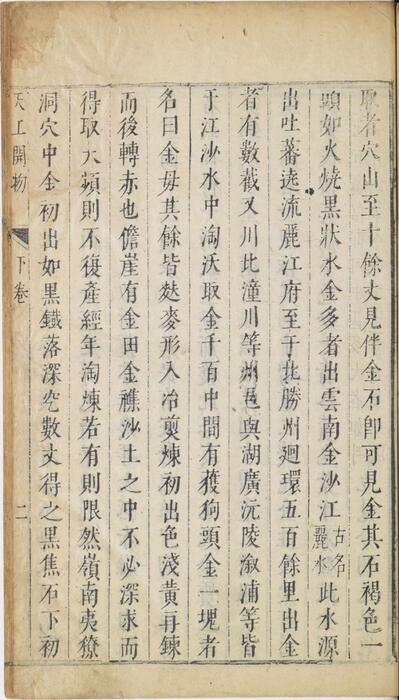 取者穴山至十餘丈見伴金石卽可見金其石褐色一
頭如火燒黑狀水金多者出雲南金沙江古名麗水此水源
出吐蕃遶流麗江府至于北勝州迴環五百餘里出金
者有數截又川北潼川等州邑與湖廣沅陵漵浦等皆
于江沙水中淘沃取金千百中間有獲狗頭金一塊者
名曰金母其餘皆麩麥形入冶煎煉初出色淺黃再鍊
而後轉赤也儋崖有金田金襍沙土之中不必深求而
得取太頻則不復產經年淘煉若有則限然嶺南夷獠
洞穴中金初出如黑鐵落深空數丈得之黑焦石下初
天工開物 下卷 二